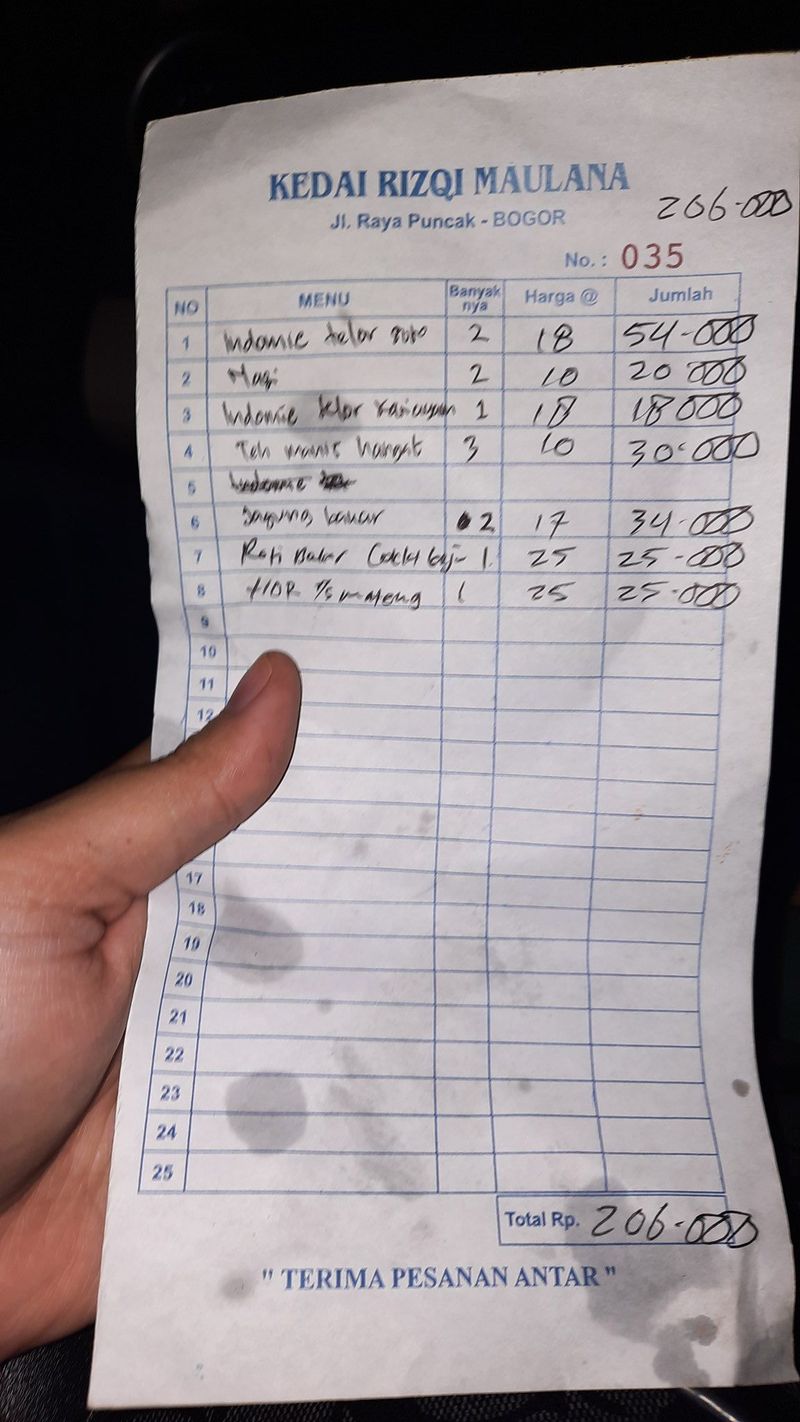 KEDAI RIZQI MAULANA
Jl. Raya Puncak - BOGOR
206-000
No. : 035
NO MENU Banyak nya Harga @ Jumlah
1 Indomie telor soto 2 18 54-000
2 Nasi 2 10 20 000
3 Indomie telor 1 18 18 000
4 Teh manis hangat 3 10 30-000
5
6 Jagung bakar 2 17 34-000
7 Roti Bakar 1 25 25-000
8 1 25 25-000
9
10
11
12
17
18
19
20
21
22
23
24
25
Total Rp. 206-000
" TERIMA PESANAN ANTAR "